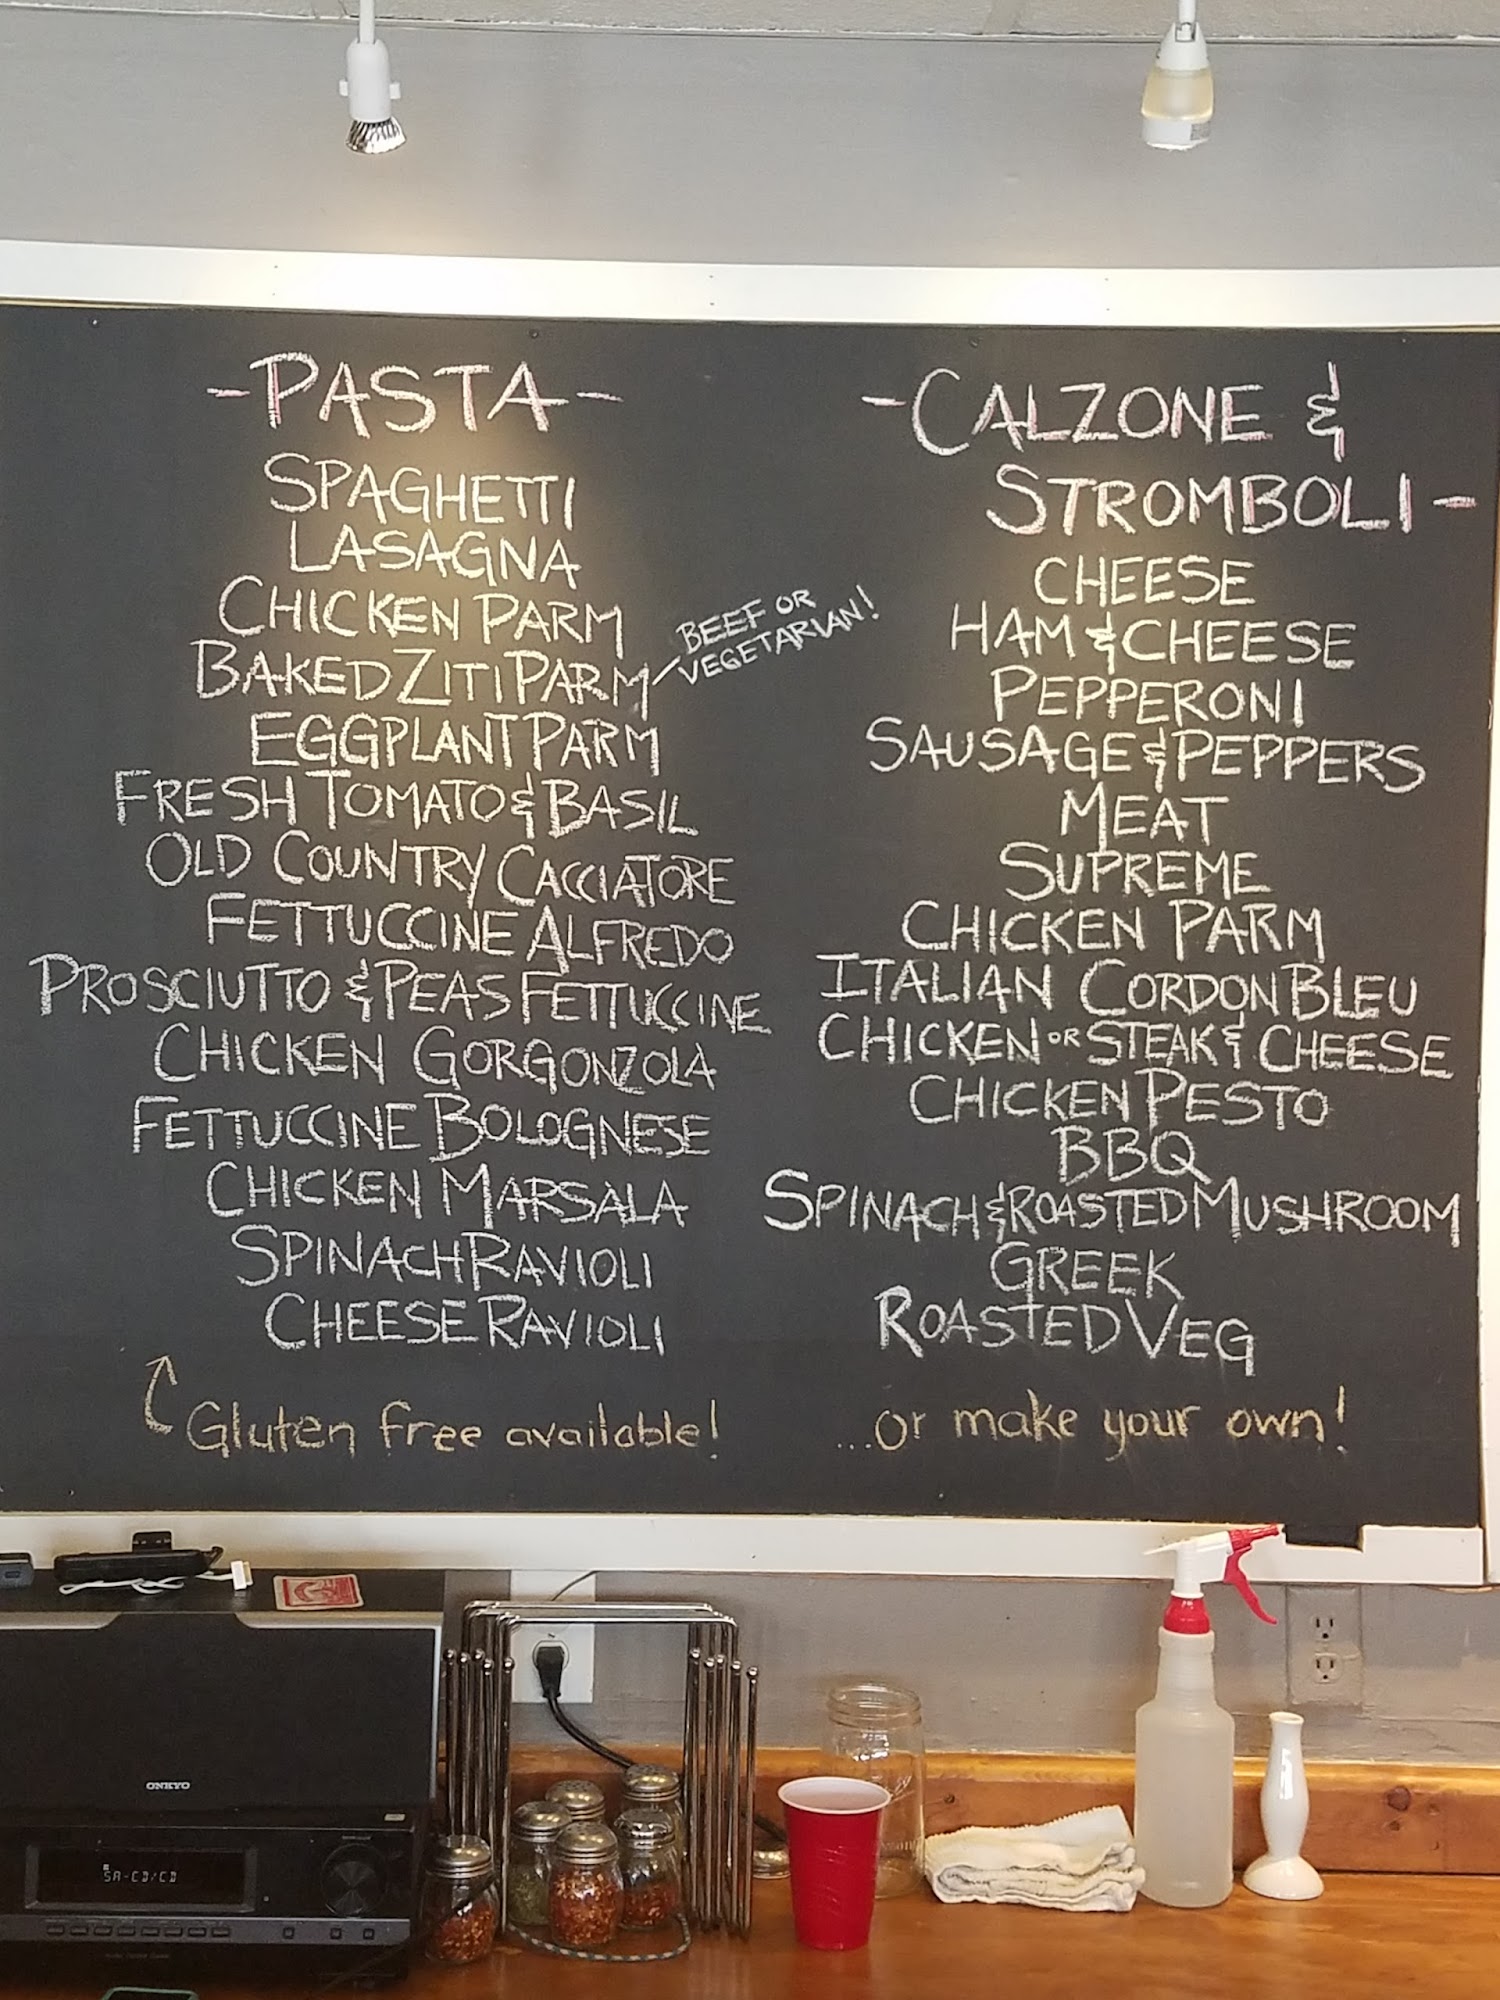 -PASTA-
SPAGHETTI
LASAGNA
CHICKEN PARM
BAKED ZITI PARM
BEEF OR
VEGETARIAN!
EGGPLANT PARM
FRESH TOMATO & BASIL
OLD COUNTRY CACCIATORE
FETTUCCINE ALFREDO
PROSCIUTTO & PEAS FETTUCCINE
CHICKEN GORGONZOLA
FETTUCCINE BOLOGNESE
CHICKEN MARSALA
SPINACH RAVIOLI
CHEESE RAVIOLI
Gluten free available!
-CALZONE &
STROMBOLI-
CHEESE
HAM & CHEESE
PEPPERONI
SAUSAGE & PEPPERS
MEAT
SUPREME
CHICKEN PARM
ITALIAN CORDON BLEU
CHICKEN OR STEAK & CHEESE
CHICKEN PESTO
BBQ
SPINACH & ROASTED MUSHROOM
GREEK
ROASTED VEG
...or make your own!
ONKYO
SA-CD/CD